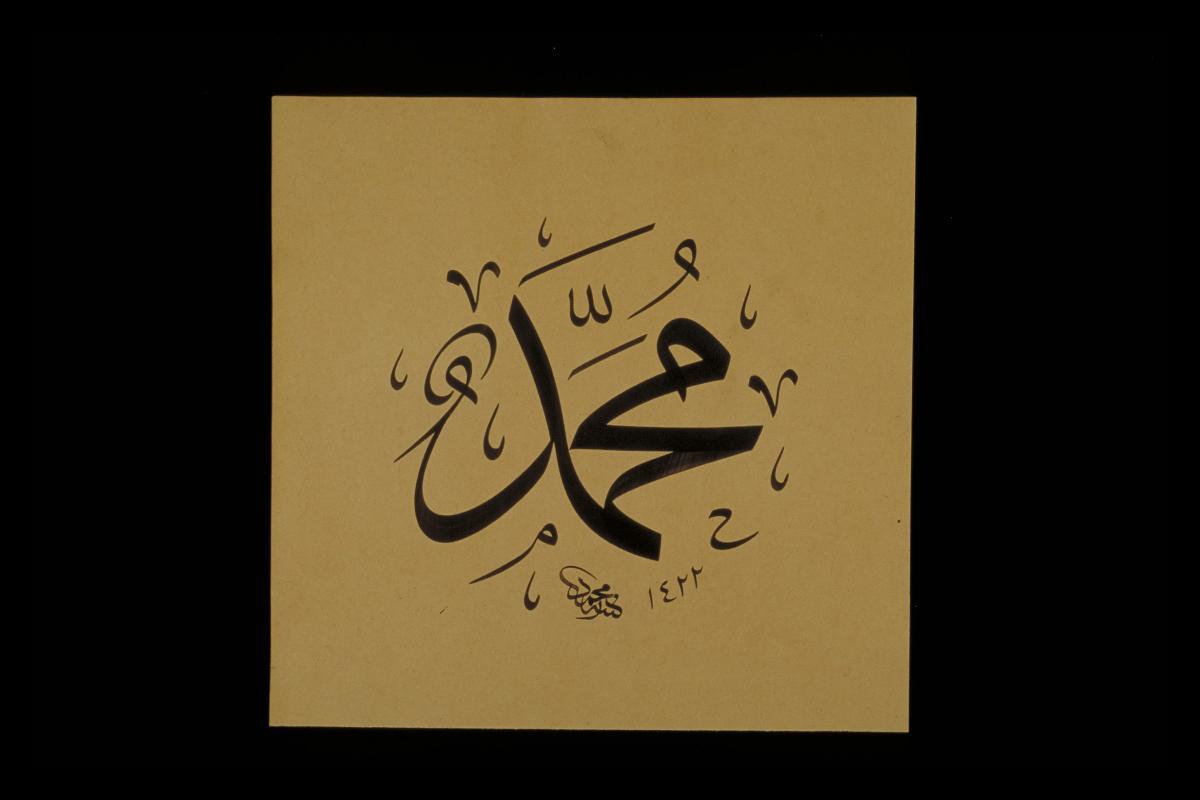 مُحَمَّدٌ
١٤٢٢